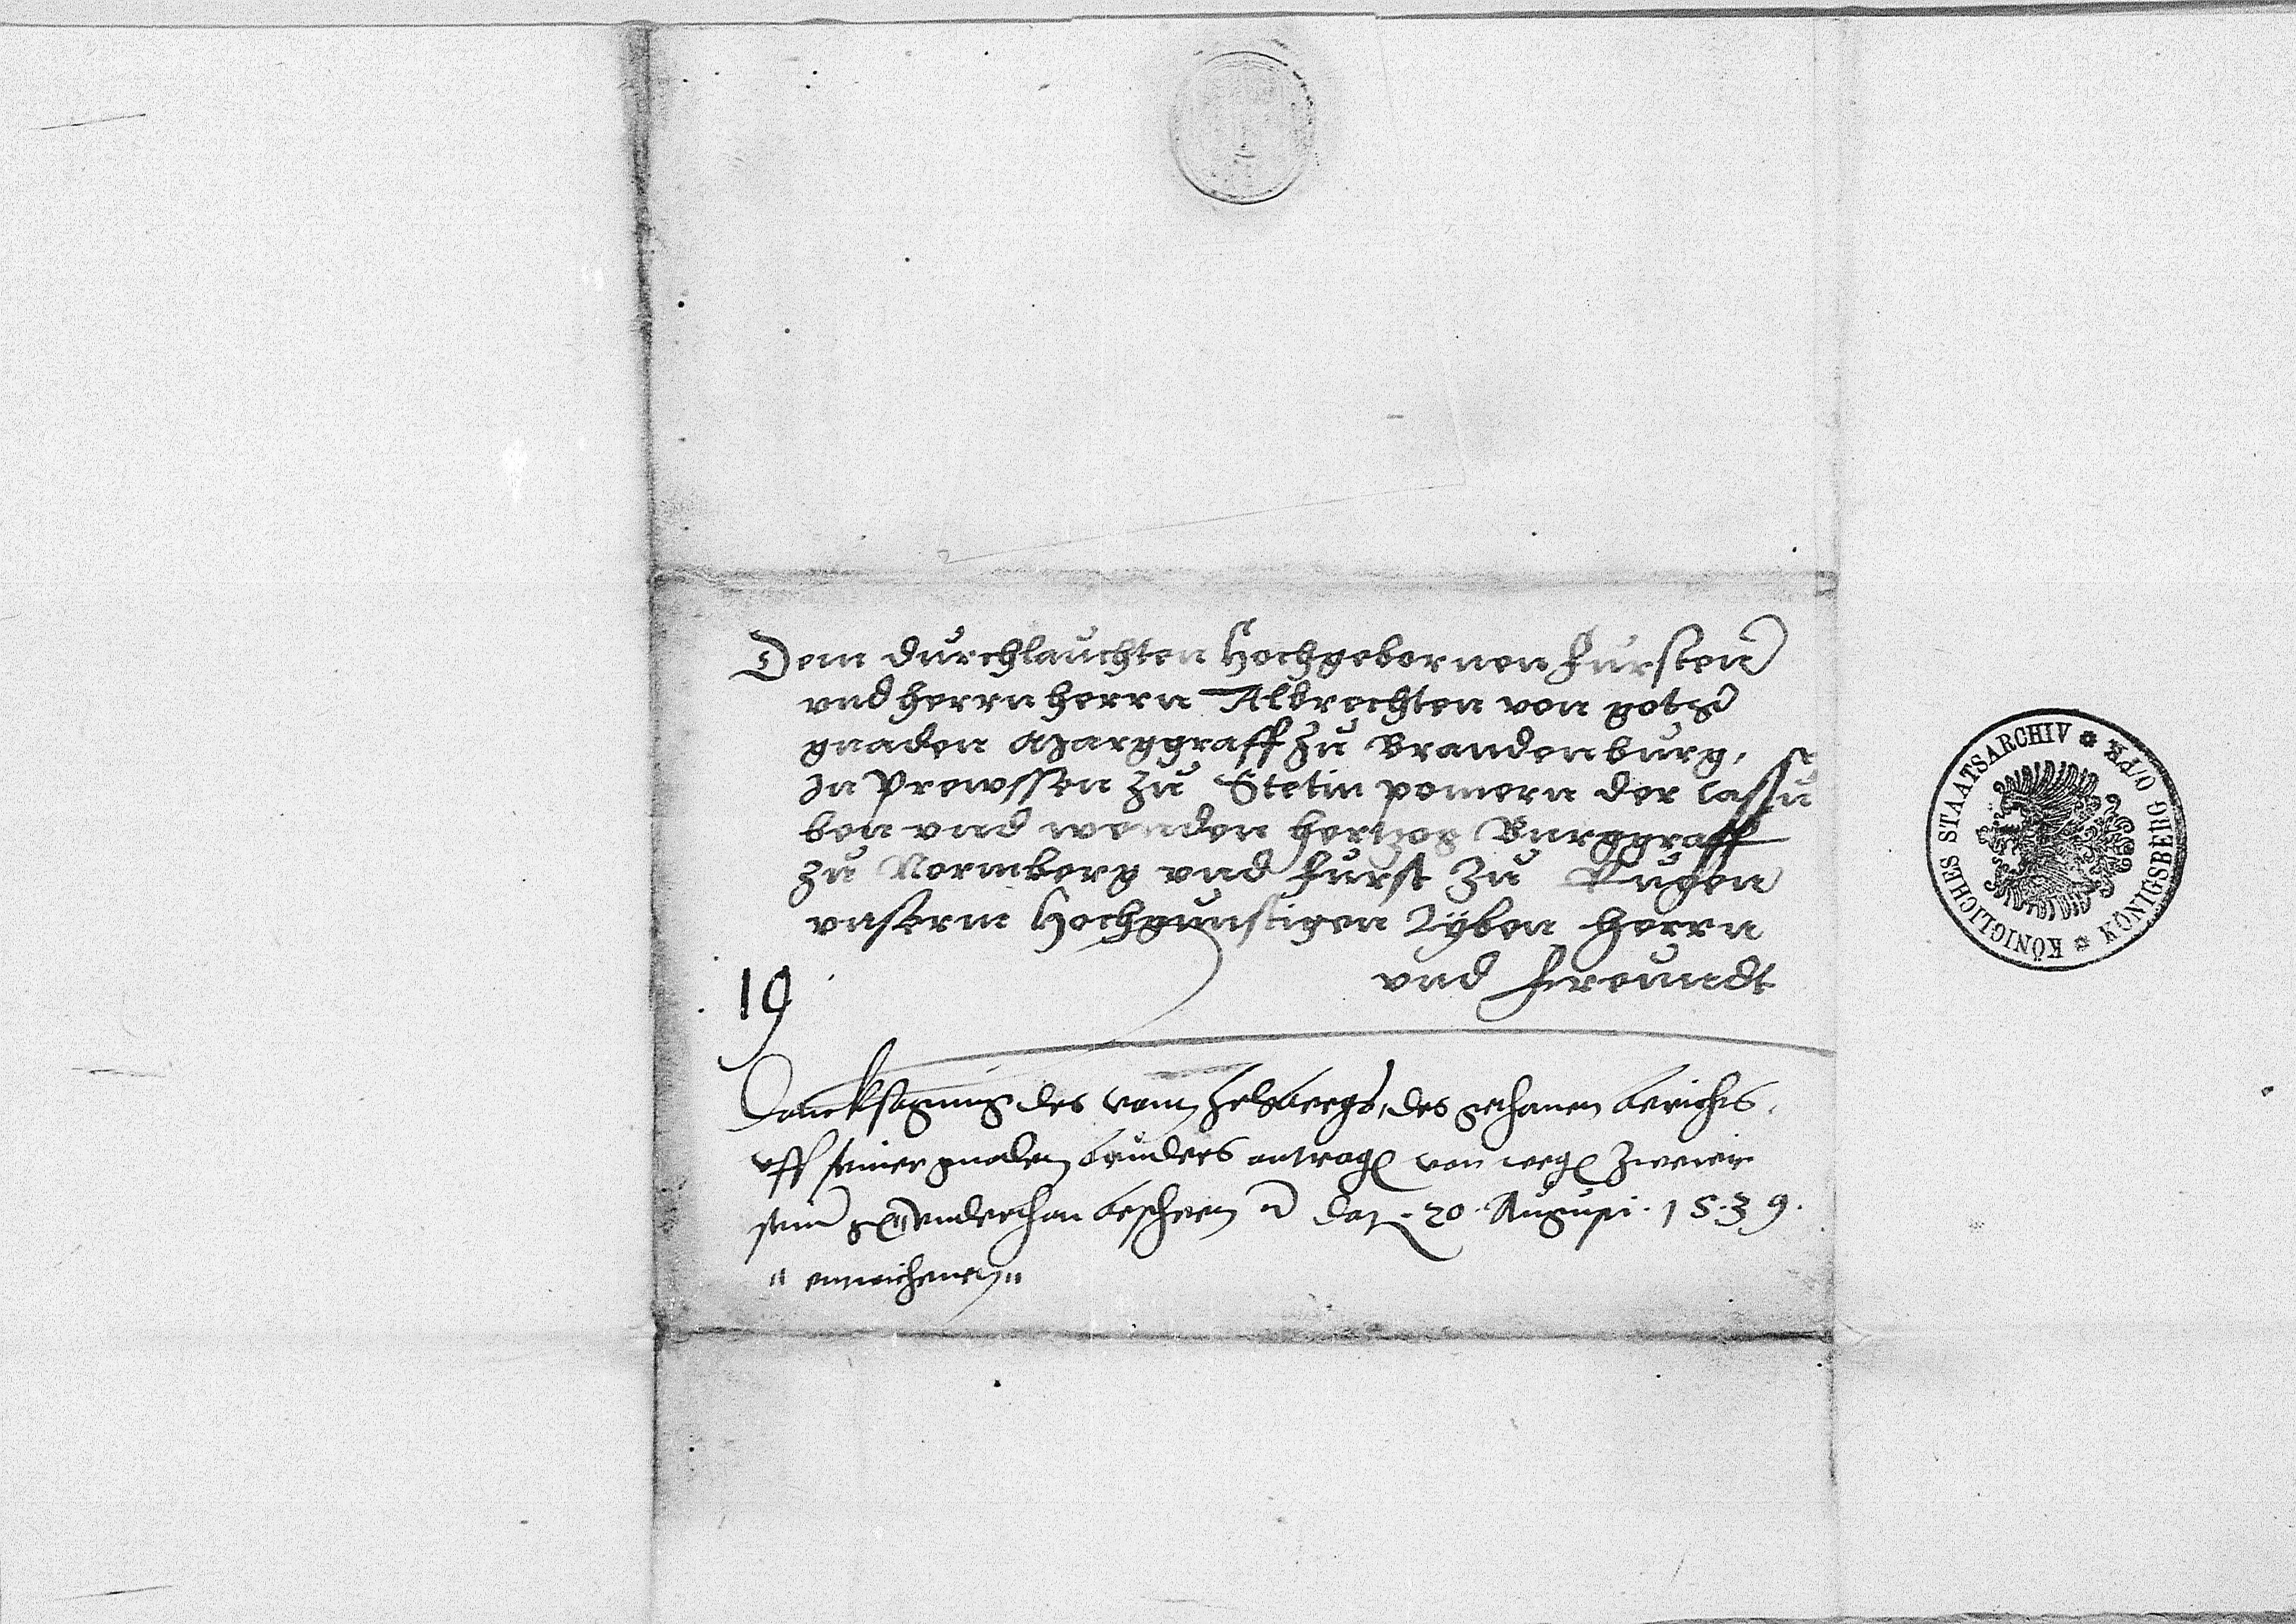 Dem durchlauchten Hochgebornen fursten
vnd herrn herrn Albrechten von gots
gnaden Marggraff zu Brandenburg,
In Prewssen zu Stetin pomern der Cassu
ben vnd wenden hertzog Burggraff
zu Normberg vnd furst zu Rugen
vnserm Hochgunstigen lyben herrn
vnd freundt
19
Dancksagung des vom helsbergs, des gethanen berichts,
vff seiner gnaden bruders antrage von wege zweier
seiner vnderthan bescheen dat. 20 Augusti. 1539.
KÖNIGLICHES STAATSARCHIV * KÖNIGSBERG O/PR. *